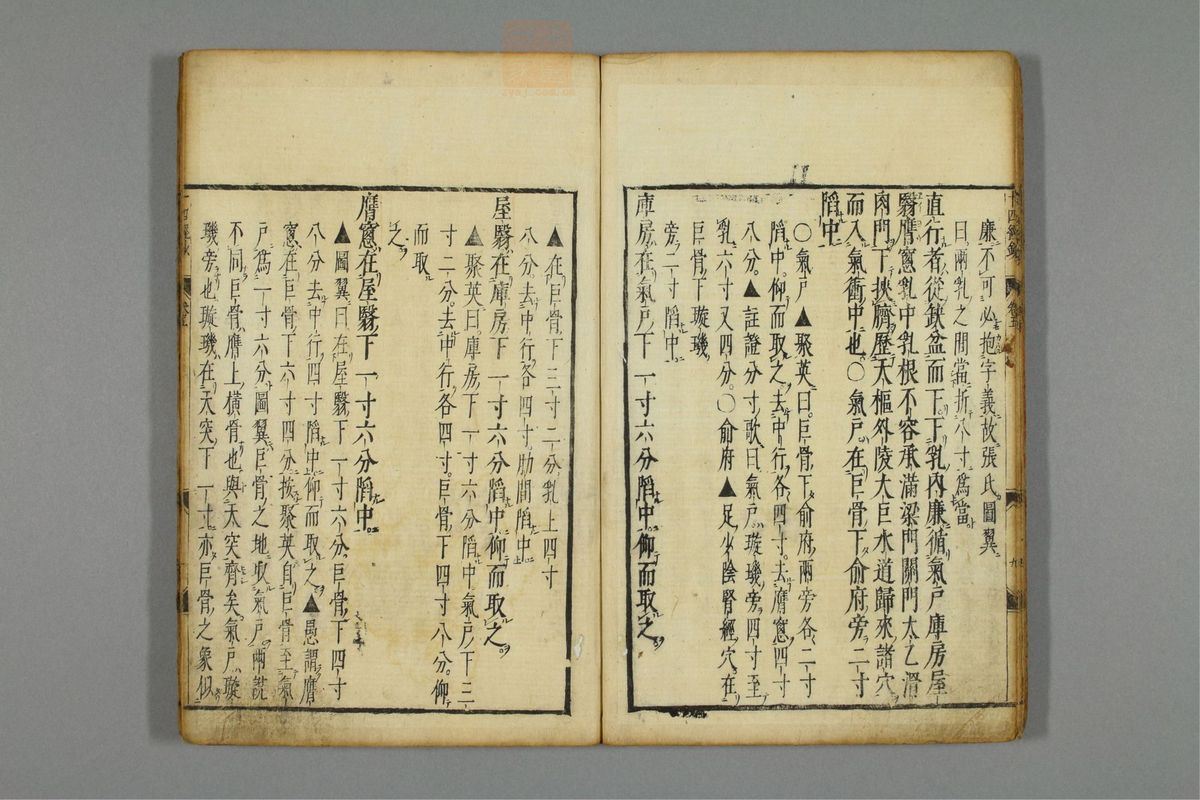 廉不可必抱字義故張氏圖翼
曰兩乳之間當折八寸爲當
直行者從缺盆而下下乳內廉循氣戶庫房屋
翳膺窓乳中乳根不容承滿梁門關門太乙滑
肉門下挾臍歷天樞外陵大巨水道歸來諸穴
而入氣衝中也〇氣戶在巨骨下俞府旁二寸
陷中
〇氣戶▲聚英曰巨骨下俞府兩旁各二寸
陷中仰而取之去中行各四寸去膺窓四寸
八分▲註證分寸歌曰氣戶璇璣旁四寸至
乳六寸又四分〇俞府▲足少陰腎經穴在
巨骨下璇璣
旁二寸陷中
庫房在氣戶下一寸六分陷中仰而取之
▲在巨骨下三寸二分乳上四寸
八分去中行各四寸肋間陷中
屋翳在庫房下一寸六分陷中仰而取之
▲聚英曰庫房下一寸六分陷中氣戶下三
寸二分去中行各四寸巨骨下四寸八分仰
而取
之
膺窓在屋翳下一寸六分陷中
▲圖翼曰在屋翳下一寸六分巨骨下四寸
八分去中行四寸陷中仰而取之▲愚謂膺
窓在巨骨下六寸四分按聚英自巨骨至氣
戶爲一寸六分圖翼巨骨之地取氣戶兩說
不同巨骨膺上橫骨也與天突齊矣氣戶璇
璣旁也璇璣在天突下一寸亦巨骨之象似